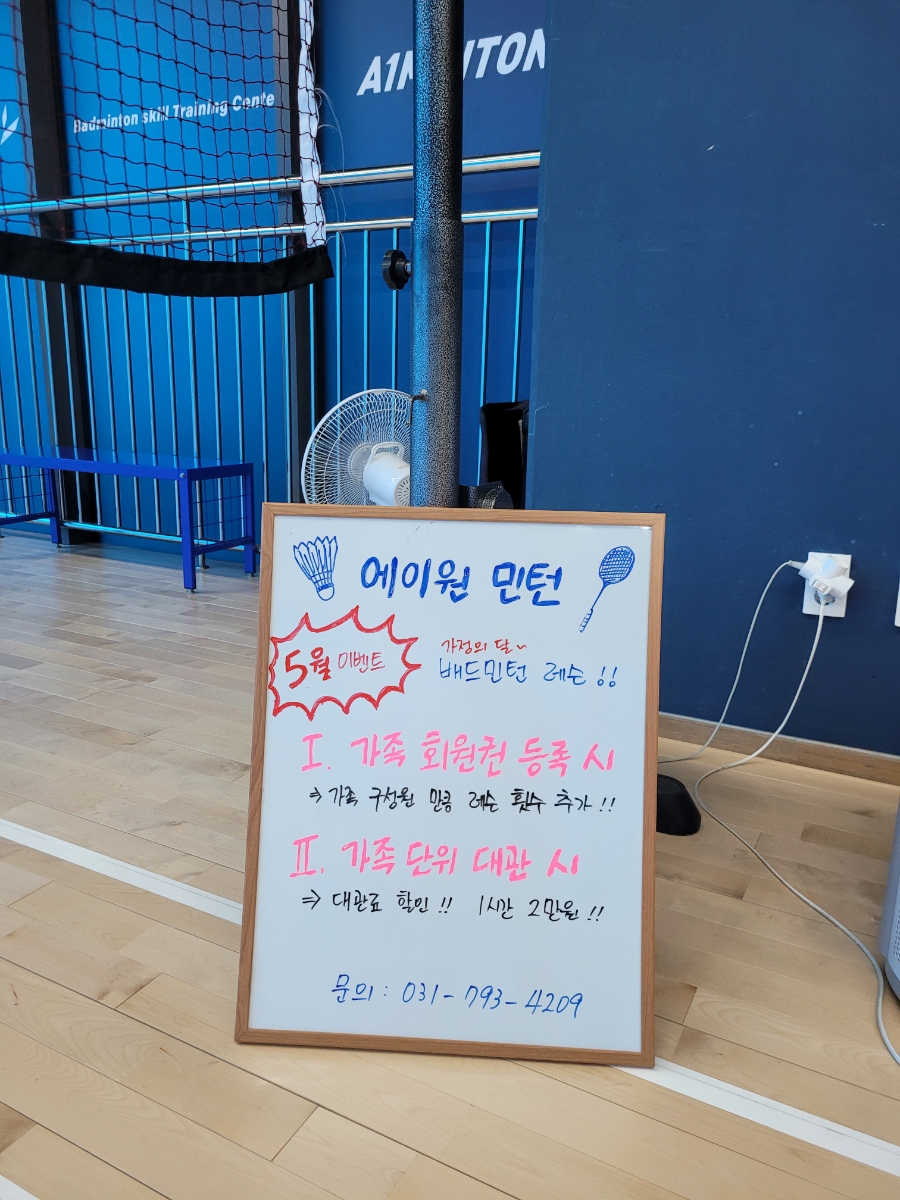 Badminton skill Training Cente
에이원 민턴
5월 이벤트
가정의 달~
배드민턴 레슨 !!
I. 가족 회원권 등록 시
⇒ 가족 구성원 만큼 레슨 횟수 추가 !!
II. 가족 단위 대관 시
⇒ 대관료 할인 !! 1시간 2만원 !!
문의 : 031-793-4209